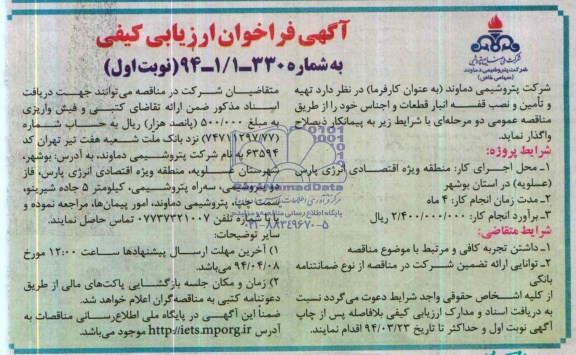 آگهی فراخوان ارزیابی کیفی
به شماره ۳۳۰-۱/۱-۹۴ (نوبت اول)
شرکت پتروشیمی دماوند
(سهامی خاص)
شرکت پتروشیمی دماوند (به عنوان کارفرما) در نظر دارد تهیه
و تأمین و نصب قفسه انبار قطعات و اجناس خود را از طریق
مناقصه عمومی دو مرحله‌ای با شرایط زیر به پیمانکار ذیصلاح
واگذار نماید.
شرایط پروژه:
۱- محل اجرای کار: منطقه ویژه اقتصادی انرژی پارس
(عسلویه) در استان بوشهر
۲- مدت زمان انجام کار: ۴ ماه
۳- برآورد انجام کار: ۲/۴۰۰/۰۰۰/۰۰۰ ریال
شرایط متقاضی:
۱- داشتن تجربه کافی و مرتبط با موضوع مناقصه
۲- توانایی ارائه تضمین شرکت در مناقصه از نوع ضمانتنامه
بانکی
از کلیه اشخاص حقوقی واجد شرایط دعوت می‌گردد نسبت
به دریافت اسناد و مدارک ارزیابی کیفی بلافاصله پس از چاپ
آگهی نوبت اول و حداکثر تا تاریخ ۹۴/۰۳/۲۳ اقدام نمایند.
متقاضیان شرکت در مناقصه می‌توانند جهت دریافت
اسناد مذکور ضمن ارائه تقاضای کتبی و فیش واریزی
به مبلغ ۵۰۰/۰۰۰ (پانصد هزار) ریال به حساب شماره
(۷۴۷۱۱۲۹۷/۷۷) نزد بانک ملت شعبه هفت تیر تهران کد
۶۳۵۹۴ به نام شرکت پتروشیمی دماوند، به آدرس: بوشهر،
شهرستان عسلویه، منطقه ویژه اقتصادی انرژی پارس، فاز
دو پتروشیمی، سه‌راه پتروشیمی، کیلومتر ۵ جاده شیرینو،
سمت جنب پتروشیمی دماوند، امور پیمان‌ها، مراجعه نموده و
یا با شماره تلفن ۰۷۷۳۷۳۲۱۰۰۷ تماس حاصل نمایند.
سایر توضیحات:
۱) آخرین مهلت ارسال پیشنهادها ساعت ۱۲:۰۰ مورخ
۹۴/۰۴/۰۸ می‌باشد.
۲) زمان و مکان جلسه بازگشایی پاکت‌های مالی از طریق
دعوتنامه کتبی به مناقصه‌گران اعلام خواهد شد.
ضمناً این آگهی در پایگاه ملی اطلاع‌رسانی مناقصات به
آدرس http://iets.mporg.ir موجود می‌باشد.
پایگاه اطلاع رسانی مناقصه و مزایده
۰۲۱-۸۸۳۴۹۶۷۰-۵